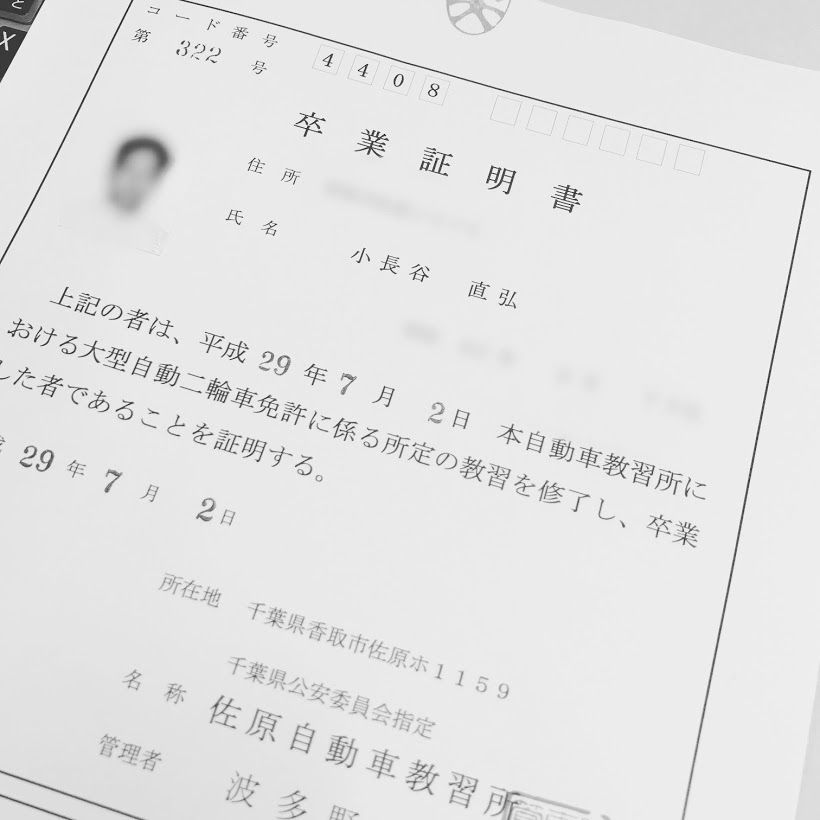 コード番号 4408
第 322 号
卒業証明書
住所
氏名 小長谷 直弘
上記の者は、平成 29 年 7 月 2 日 本自動車教習所に
おける大型自動二輪車免許に係る所定の教習を修了し、卒業
した者であることを証明する。
29 年 7 月 2 日
所在地 千葉県香取市佐原ホ1159
千葉県公安委員会指定
名称 佐原自動車教習所
管理者 波多野